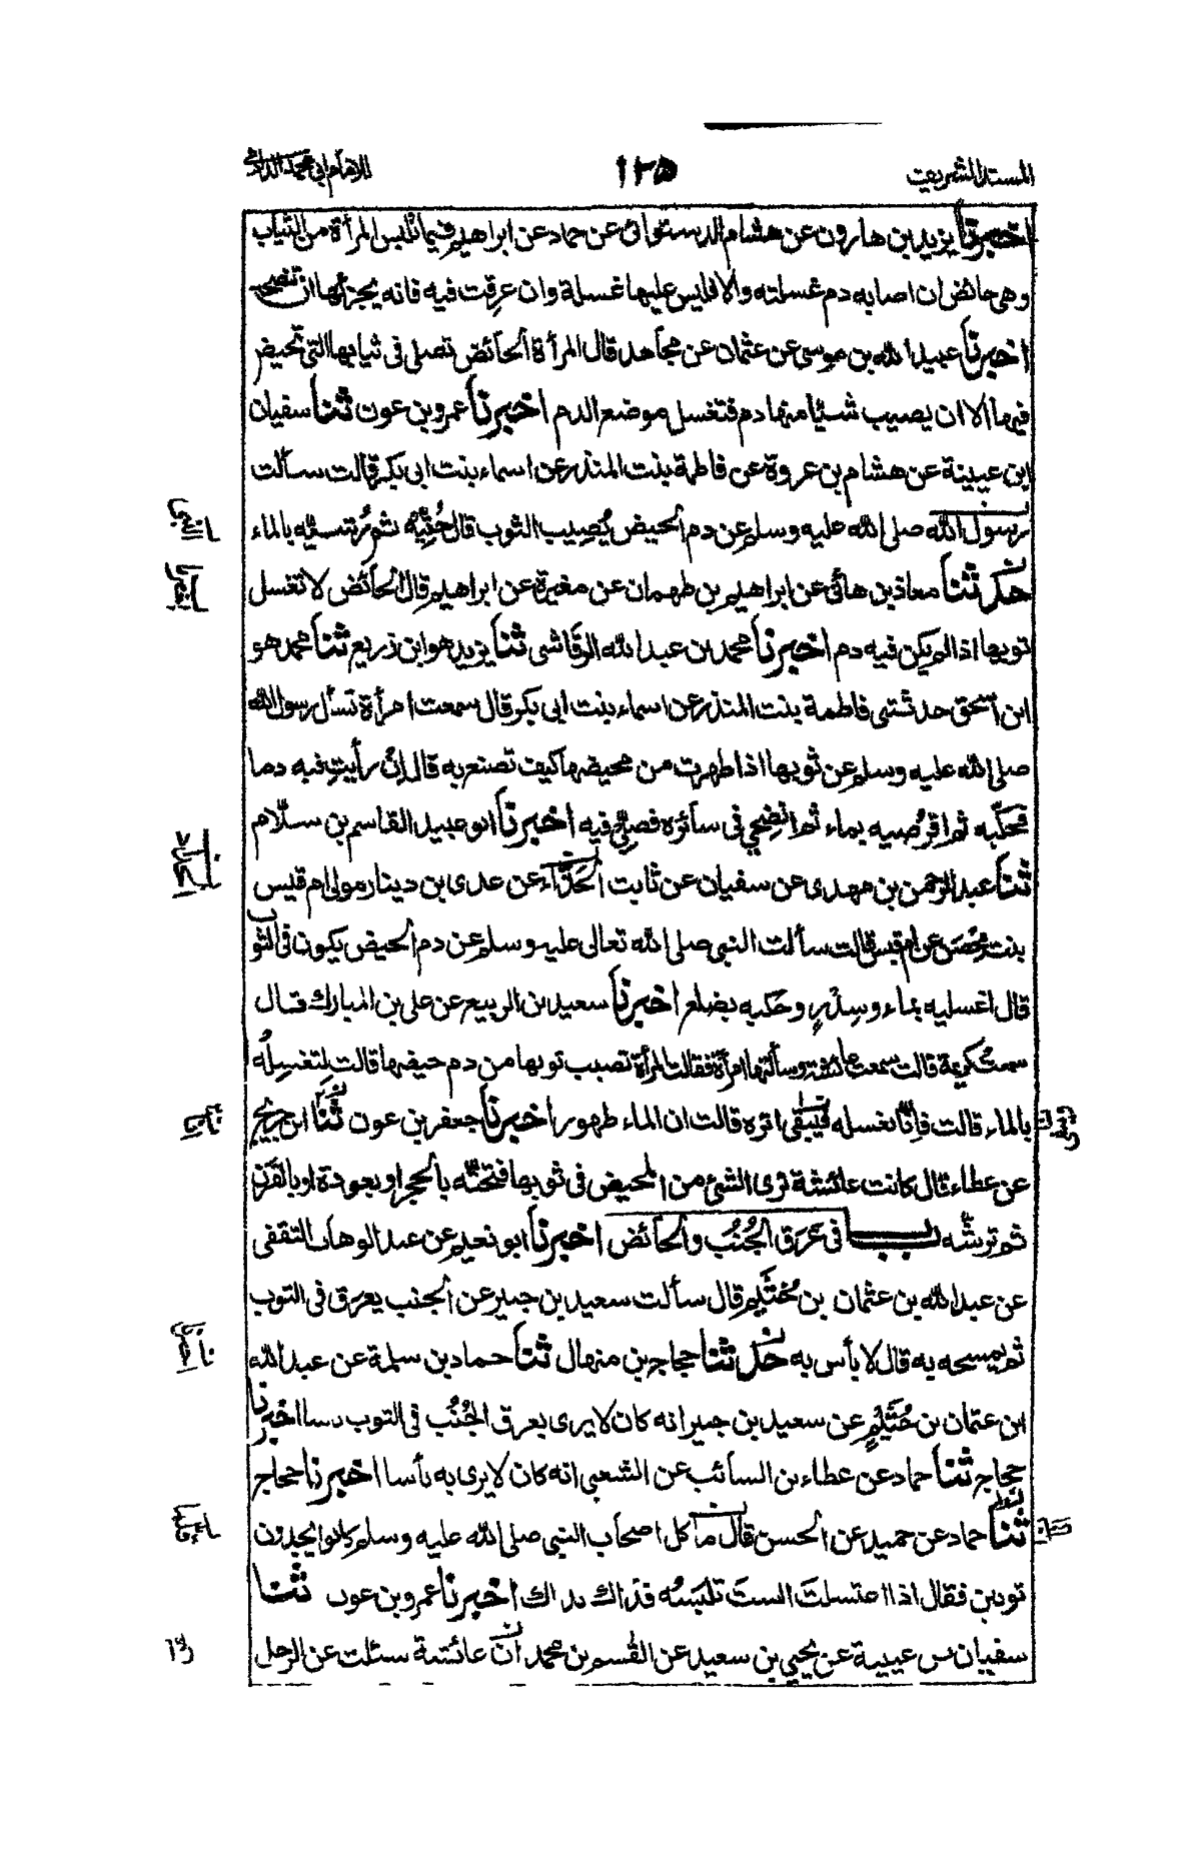 المسند الشريف ١٢٥ للامام ابي محمد الدارمي
اخبرنا يزيد بن هارون عن هشام الدستوائي عن حماد عن ابراهيم فيما تلبس المرأة من الثياب
وهي حائض ان اصابه دم غسلته والا فليس عليها غسله وان عرقت فيه فانه يجزئها ان تنضحه
اخبرنا عبيد الله بن موسى عن عثمان عن مجاهد قال المرأة الحائض تصلى في ثيابها التي تحيض
فيها الا ان يصيب شيئا منها دم فتغسل موضع الدم اخبرنا عمرو بن عون ثنا سفيان
ابن عيينة عن هشام بن عروة عن فاطمة بنت المنذر عن اسماء بنت ابى بكر قالت سألت
رسول الله صلى الله عليه وسلم عن دم الحيض يُصِيب الثوب قال حُتِّيه ثم رشيه بالماء
حدثنا معاذ بن هانى عن ابراهيم بن طهمان عن مغيرة عن ابراهيم قال الحائض لا تغسل
ثوبها اذا لم يكن فيه دم اخبرنا محمد بن عبد الله الرقاشى ثنا يزيد هو ابن زريع ثنا محمد هو
ابن اسحق حدثتنى فاطمة بنت المنذر عن اسماء بنت ابى بكر قال سمعت امرأة تسأل رسول الله
صلى الله عليه وسلم عن ثوبها اذا طهرت من محيضها كيف تصنع به قال اِنْ رأيتِ فيه دما
فحكّيه ثم اقرُصيه بماء ثم انضِحي في سائره فصلّى فيه اخبرنا ابو عبيد القاسم بن سلّام
ثنا عبد الرحمن بن مهدى عن سفيان عن ثابت الحَدَّاء عن عدى بن دينار مولى ام قيس
بنت مِحْصَن عن ام قيس قالت سألت النبى صلى الله تعالى عليه وسلم عن دم الحيض يكون فى الثوب
قال اغسليه بماء وسِدْرٍ وحكيه بضلع اخبرنا سعيد بن الربيع عن على بن المبارك قال
سمعت كريمة قالت سمعت عائشة وسألتها امرأة فقالت المرأة تصيب ثوبها من دم حيضها قالت لِتغسِلْه
بالماء قالت فإنَّا نغسله فيبقى اثره قالت ان الماء طهور اخبرنا جعفر بن عون ثَنَا ابن جريج
عن عطاء قال كانت عائشة ترى الشئ من المحيض في ثوبها فتحتّه بالحجر او بعود او بالقرن
ثم ترشّه باب فى عَرَق الجُنُب والحائض اخبرنا ابو نعيم عن عبد الوهاب الثقفى
عن عبد الله بن عثمان بن خُثَيم قال سألت سعيد بن جبير عن الجنب يعرق فى الثوب
ثم يمسحه به قال لا بأس به حدثنا حجاج بن منهال ثنا حماد بن سلمة عن عبد الله
ابن عثمان بن خُثَيْمٍ عن سعيد بن جبير انه كان لا يرى بعرق الجُنُب في الثوب بأسا اخبرنا
حجاج ثنا حماد عن عطاء بن السائب عن الشعبى انه كان لا يرى به بأسا اخبرنا حجاج
ثنا حماد عن حميد عن الحسن قال ما كل اصحاب النبى صلى الله عليه وسلم كانوا يجدون
ثوبين فقال اذا اغتسلت الستَ تلبَسُه فذاك بذاك اخبرنا عمرو بن عون ثنا
سفيان بن عيينة عن يحيى بن سعيد عن القسم بن محمد ان عائشة سئلت عن الرجل